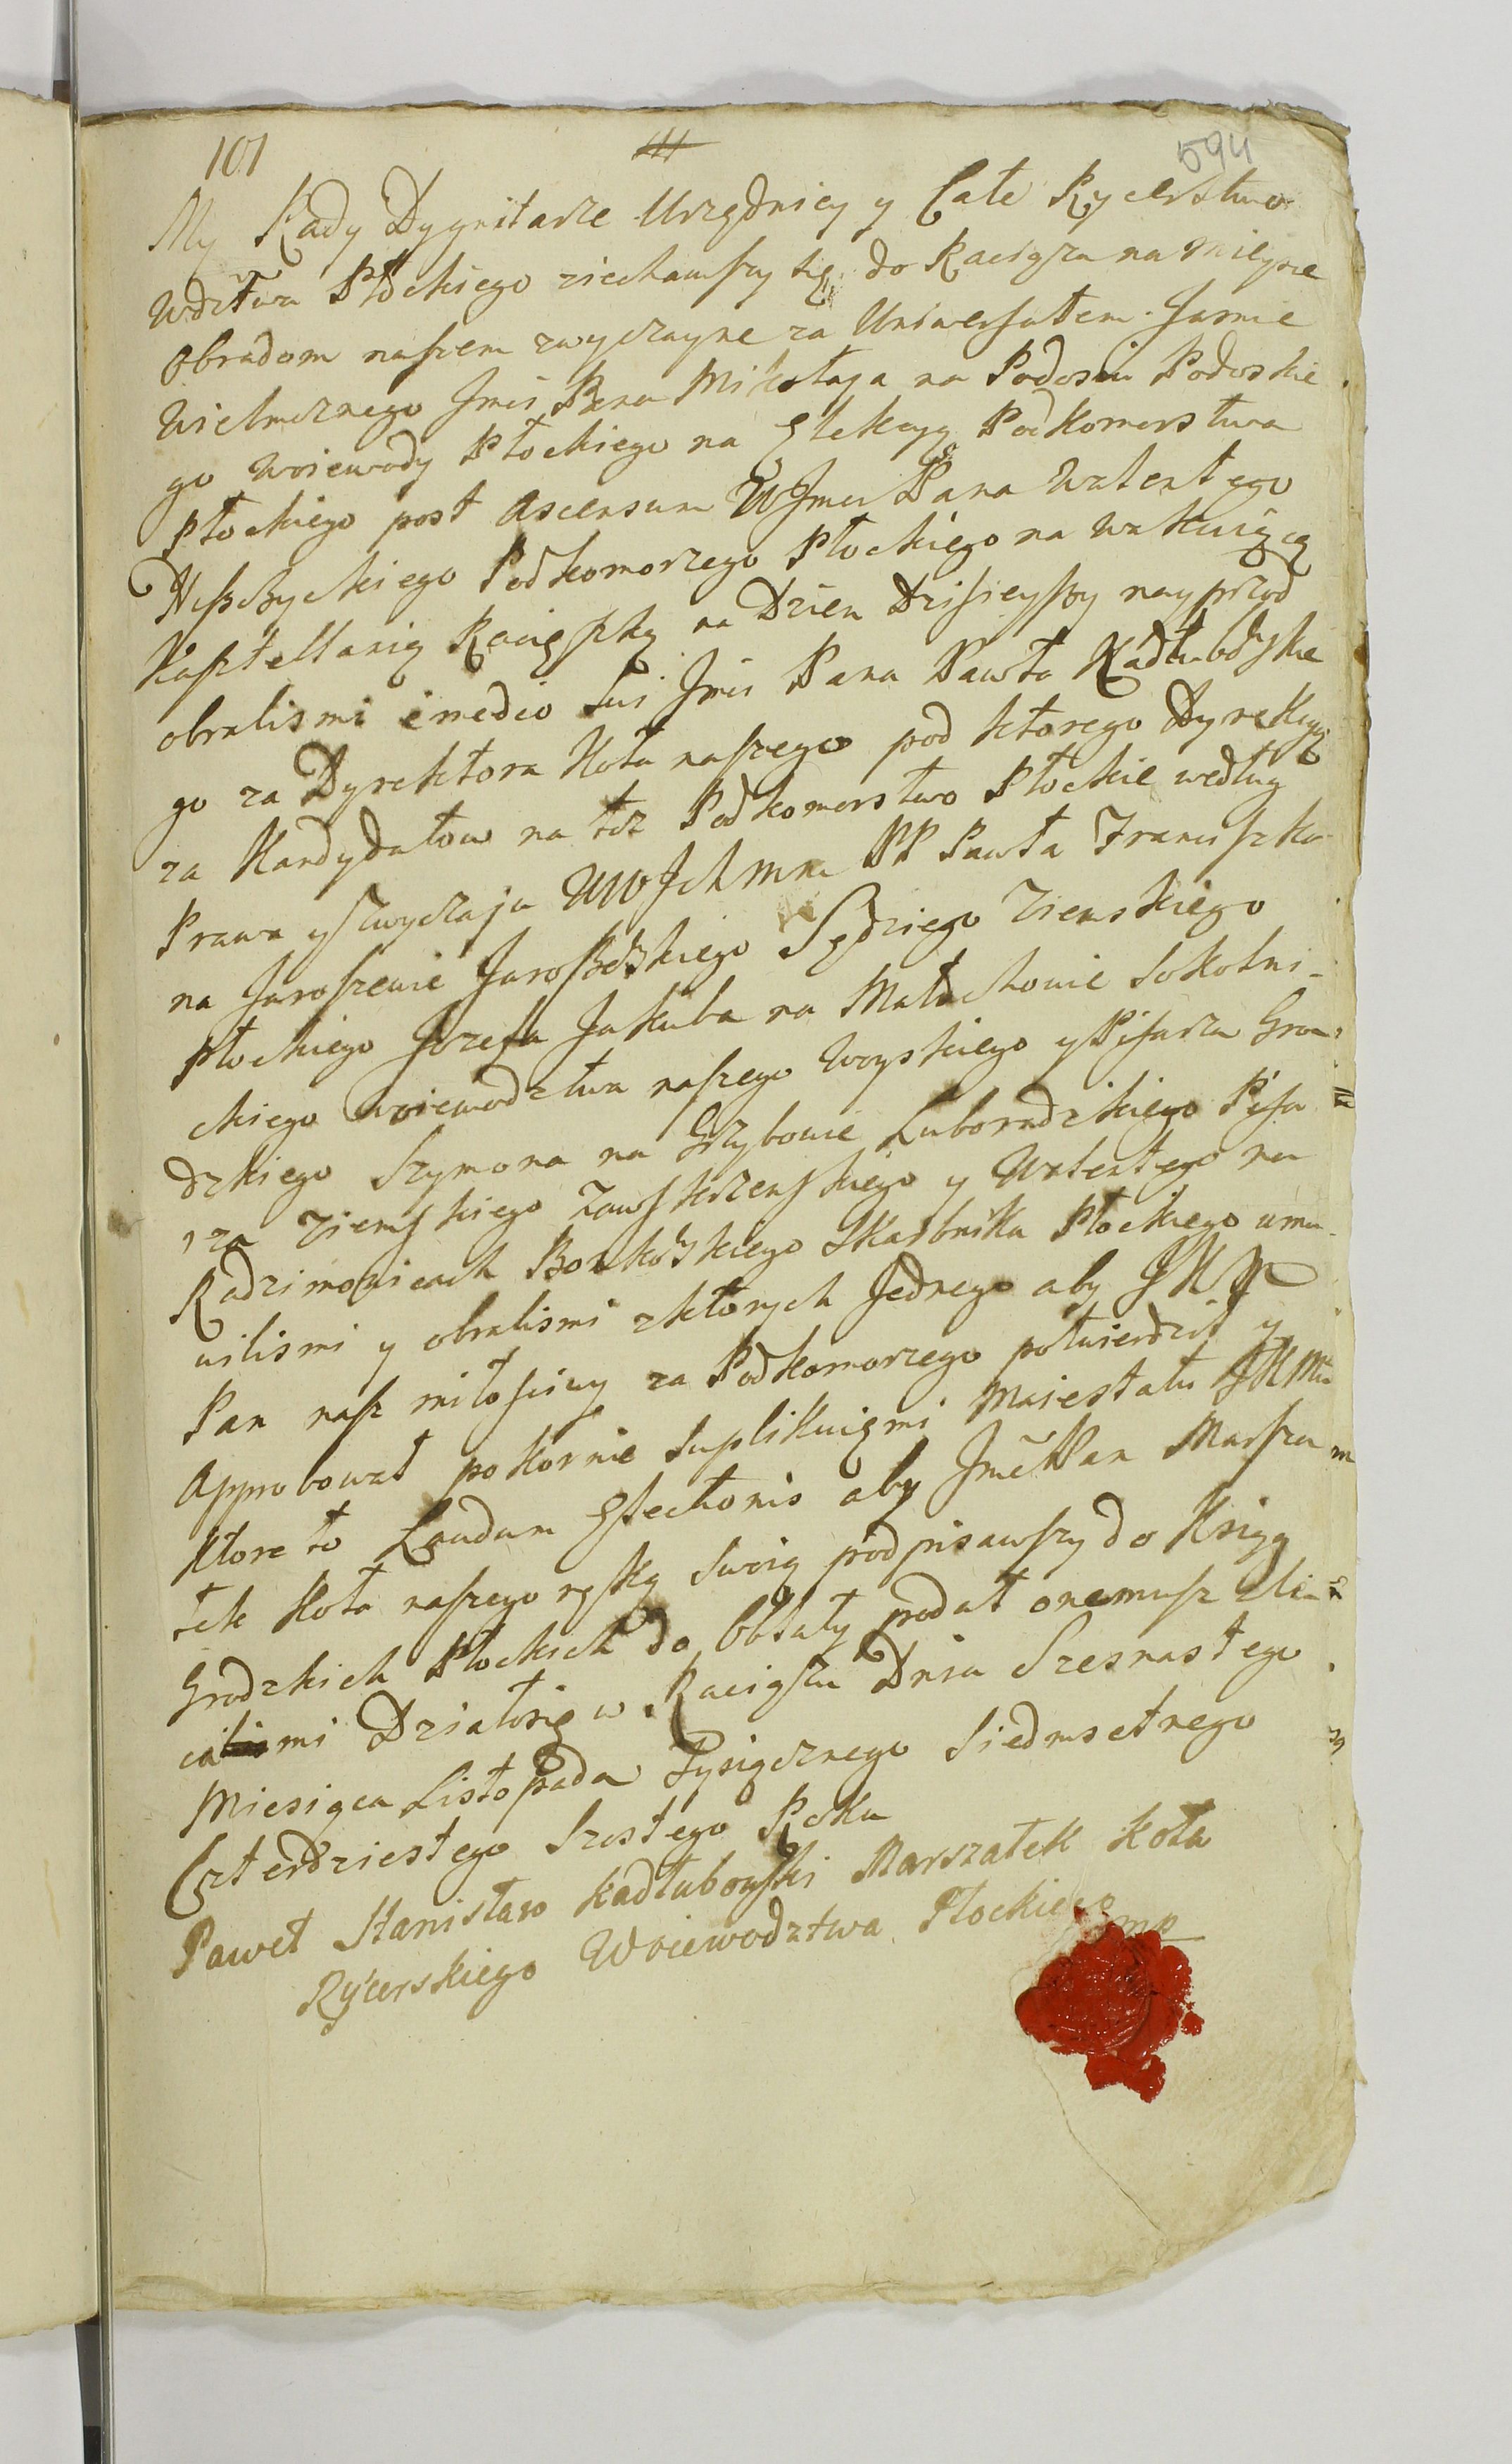 101 111 594
My Rady Dygnitarze Urzędnicy y Całe Rycerstwo
Wdztwa Płockiego ziechawszy się do Raciąza na mieysce
Obradom naszem zwyczayne za Uniwersałem Jasnie
Wielmoznego Jmci Pana Mikołaja na Podosiu Podoskie
go Woiewody Płockiego na Elekcyą Podkomorstwa
Płockiego post Ascensum WJmci Pana Walentego
Podkomorzego Płockiego na wakuiącą
Kasztellanią Raciąską na Dzien Dzisieyszy nayprzod
obralismi e medio sui Jmci Pana Pawła Kadłubowskie
go za Dyrektora Koła naszego pod ktorego Dyrekcyą
za Kandydatow na też Podkomorstwo Płockie według
Prawa y Zwyczaju WW Ich Mm PP Pawła Franciszka
na Jaroszewie Jaroszewskiego Sędziego Ziemskiego
Płockiego Jozefa Jakuba na Małachowie Sokolni-
ckiego Woiewodztwa naszego Woyskiego y Pisarza Gro
dzkiego Szymona na Grzybowie Luboradzkiego Pisa
rza Ziemskiego Zawskrzenskiego y Walentego na
Radzimowicach Borkowskiego Skarbnika Płockiego umu
wilismi y obralismi z ktorych Jednego aby JKM
Pan nasz miłosciwy za Podkomorzego potwierdził y
Approbował pokornie suplikuiąmi Maiestatu JKMci
Ktore to Laudum Electionis aby Jmć Pan Marsza
łek Koła naszego ręką swoią podpisawszy do Ksiąg
Grodzkich Płockich do Oblaty podał onemusz zle
cilismi Działosię w Raciązu Dnia Szesnastego
Miesiąca Listopada Tysiącznego Siedmsetnego
Czterdziestego Szostego Roku
Paweł Stanisław Kadłubowski Marszałek Koła
Rycerskiego Woiewodztwa Płockiego
mp